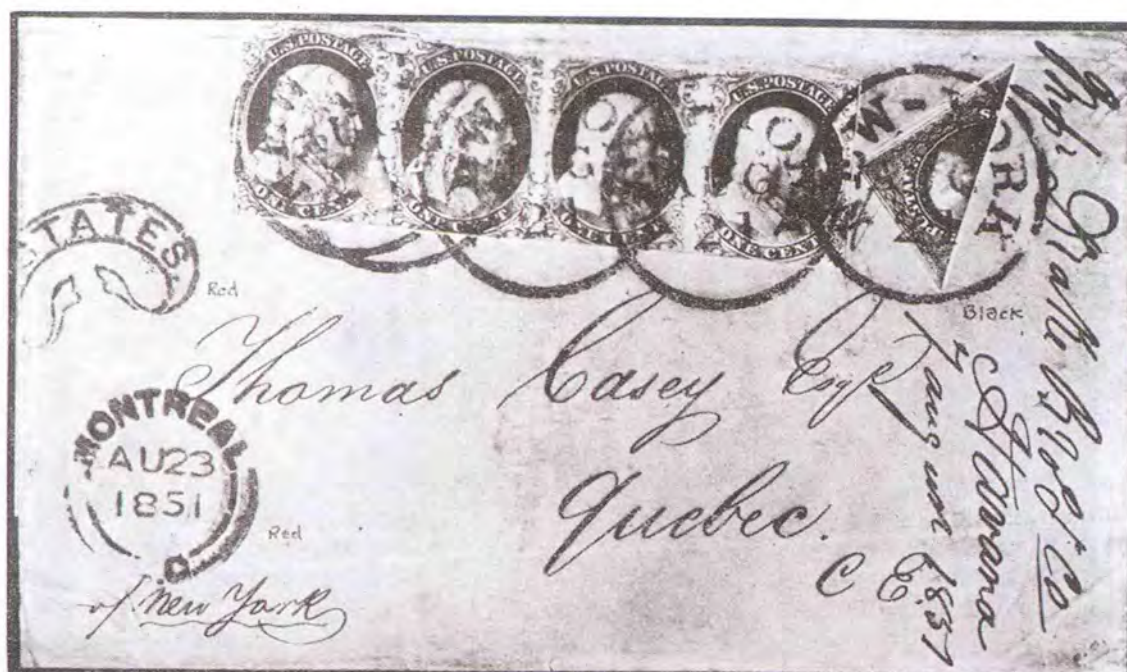 U.S.POSTAGE
ONE CENT
U.S.POSTAGE
ONE CENT
U.S.POSTAGE
ONE CENT
U.S.POSTAGE
ONE CENT
POSTAGE
ORK
STATES.
Red
Black
Thomas Casey Esqr
Quebec.
C E.
MONTREAL
AU 23
1851
C
Red
v/ New York
Bro & Co
Havana
1851